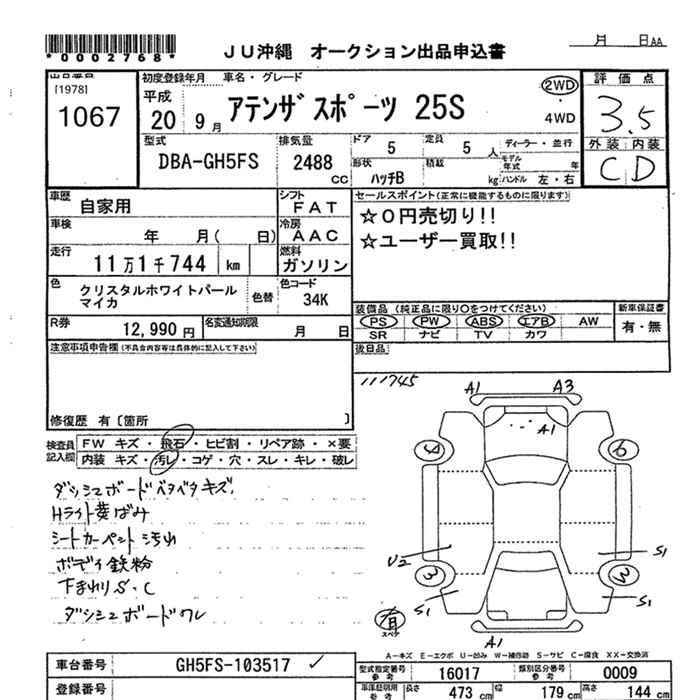 *0002768*
JU沖縄 オークション出品申込書
月 日AA
出品番号 初度登録年月 車名・グレード 評価点
[1978]
1067
平成 20年 9月
アテンザスポーツ 25S
2WD
4WD
3.5
外装 内装
C D
型式 DBA-GH5FS
排気量 2488 CC
ドア 5
定員 5 人
ディーラー・並行
形状 ハッチB
積載 kg
モデル年式 年
ハンドル 左・右
車歴 自家用
シフト FAT
セールスポイント(正常に機能するものに限ります)
☆0円売切り!!
☆ユーザー買取!!
車検 年 月( 日)
冷房 AAC
走行 11万1千744 km
燃料 ガソリン
色 クリスタルホワイトパールマイカ
色替
色コード 34K
装備品 (純正品に限り○をつけてください)
新車保証書
PS PW ABS エアB AW
有・無
SR ナビ TV カワ
R券 12,990 円
名変通知期限 月 日
後日品
注意事項申告欄 (不具合内容等は具体的に記入して下さい)
修復歴 有 〔箇所 〕
111745
検査員記入欄
FW キズ・飛石・ヒビ割・リペア跡・×要
内装 キズ・汚レ・コゲ・穴・スレ・キレ・破レ
ダッシュボードベタベタキズ
Hライト黄ばみ
シートカーペント汚れ
ボディ鉄粉
下まわりS・C
ダッシュボードワレ
A1 A3
A1
4 6
U2 S1
3 3
S1 S1
A1
有
スペア
A-キズ E-エクボ U-凹み W-補修跡 S-サビ C-腐食 XX-交換済
車台番号 GH5FS-103517 ✓
型式指定番号 参考 16017
類別区分番号 参考 0009
登録番号
車庫証明用 参考
長さ 473 cm
幅 179 cm
高さ 144 cm